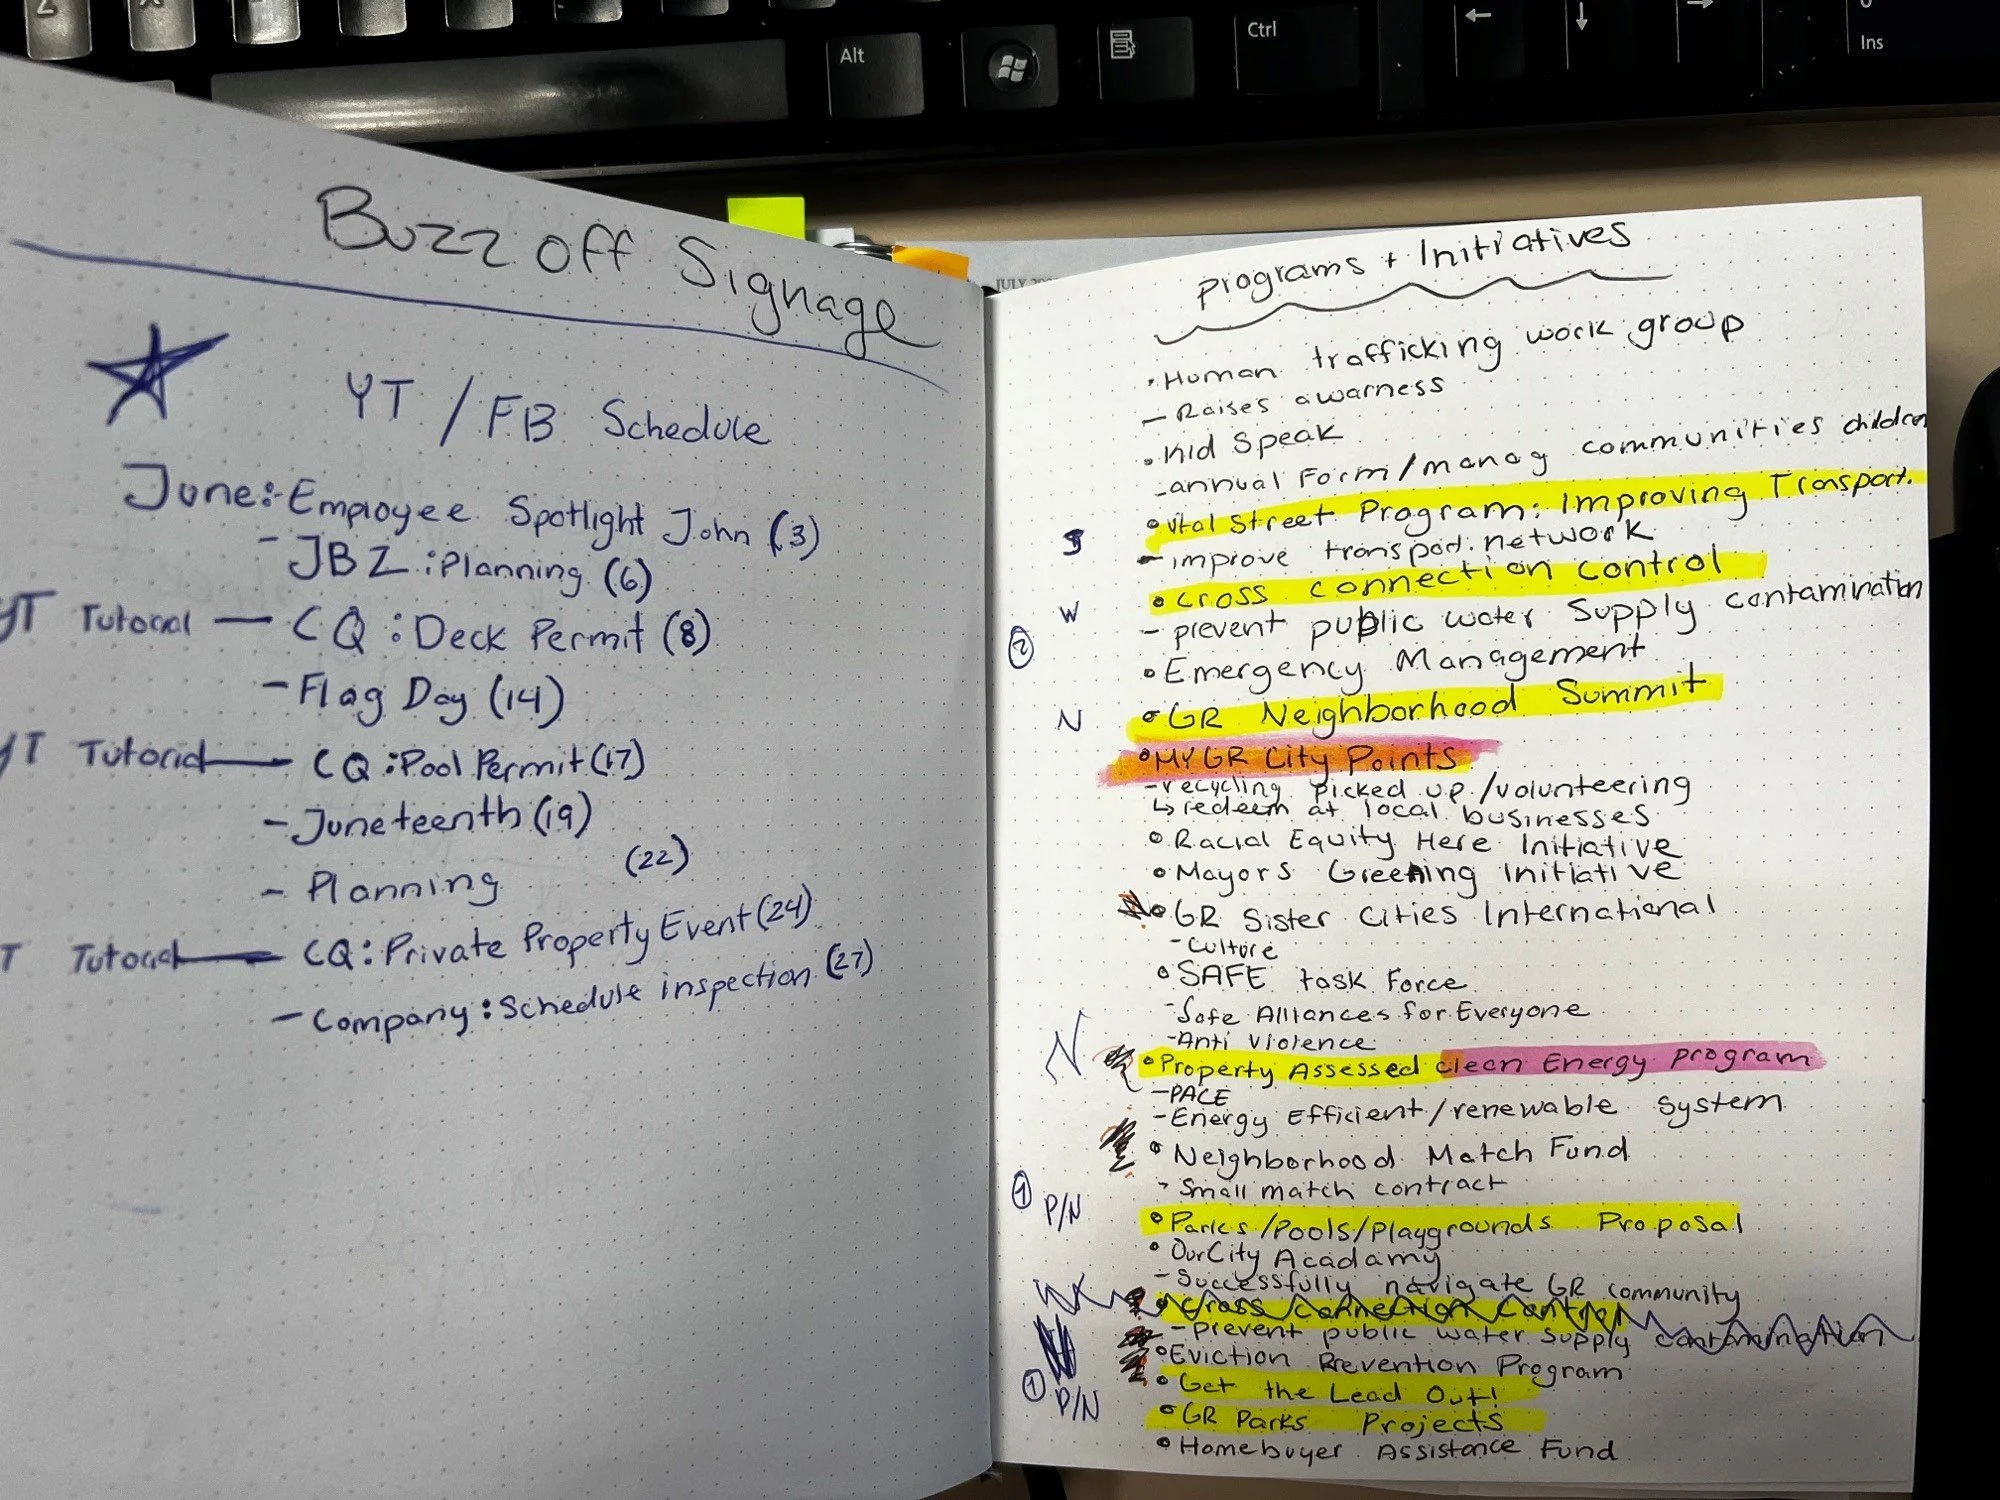 Alt
Ctrl
Ins
JULY
Buzz off Signage
YT / FB Schedule
June:- Employee Spotlight John (3)
- JBZ: Planning (6)
YT Tutorial — CQ: Deck Permit (8)
- Flag Day (14)
YT Tutorial — CQ: Pool Permit (17)
- Juneteenth (19)
- Planning (22)
T Tutorial — CQ: Private Property Event (24)
- Company: Schedule inspection (27)
Programs + Initiatives
• Human trafficking work group
- Raises awarness
• Kid Speak
- annual Form/manag communities children
S • Vital Street Program: Improving Transport.
- improve transport. network
• Cross connection control
W - prevent public water supply contamination
② • Emergency Management
N • GR Neighborhood Summit
• MYGR City Points
- recycling picked up/volunteering
↳ redeem at local businesses
• Racial Equity Here Initiative
• Mayors Greening Initiative
• GR Sister Cities International
- Culture
• SAFE task Force
- Safe Alliances for Everyone
- Anti violence
N • Property Assessed clean Energy program
- PACE
- Energy Efficient/renewable system
• Neighborhood Match Fund
- Small match contract
① P/N • Parks/Pools/Playgrounds Proposal
• OurCity Acadamy
- Successfully navigate GR community
• Cross Connection Control
- prevent public water supply contamination
• Eviction Prevention Program
① • Get the Lead Out!
P/N • GR Parks Projects
• Homebuyer Assistance Fund